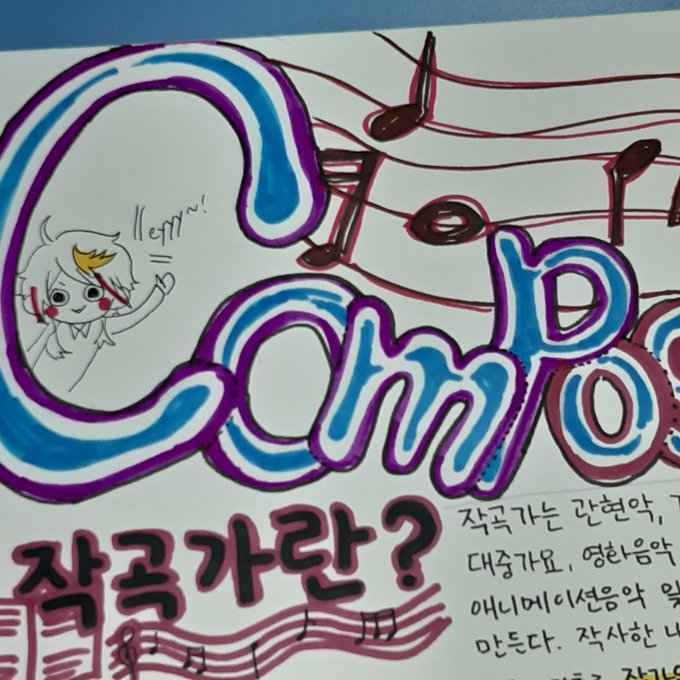 Heyyy~!
Compos
작곡가란?
작곡가는 관현악,
대중가요, 영화음악
애니메이션음악 및
만든다. 작사한 내